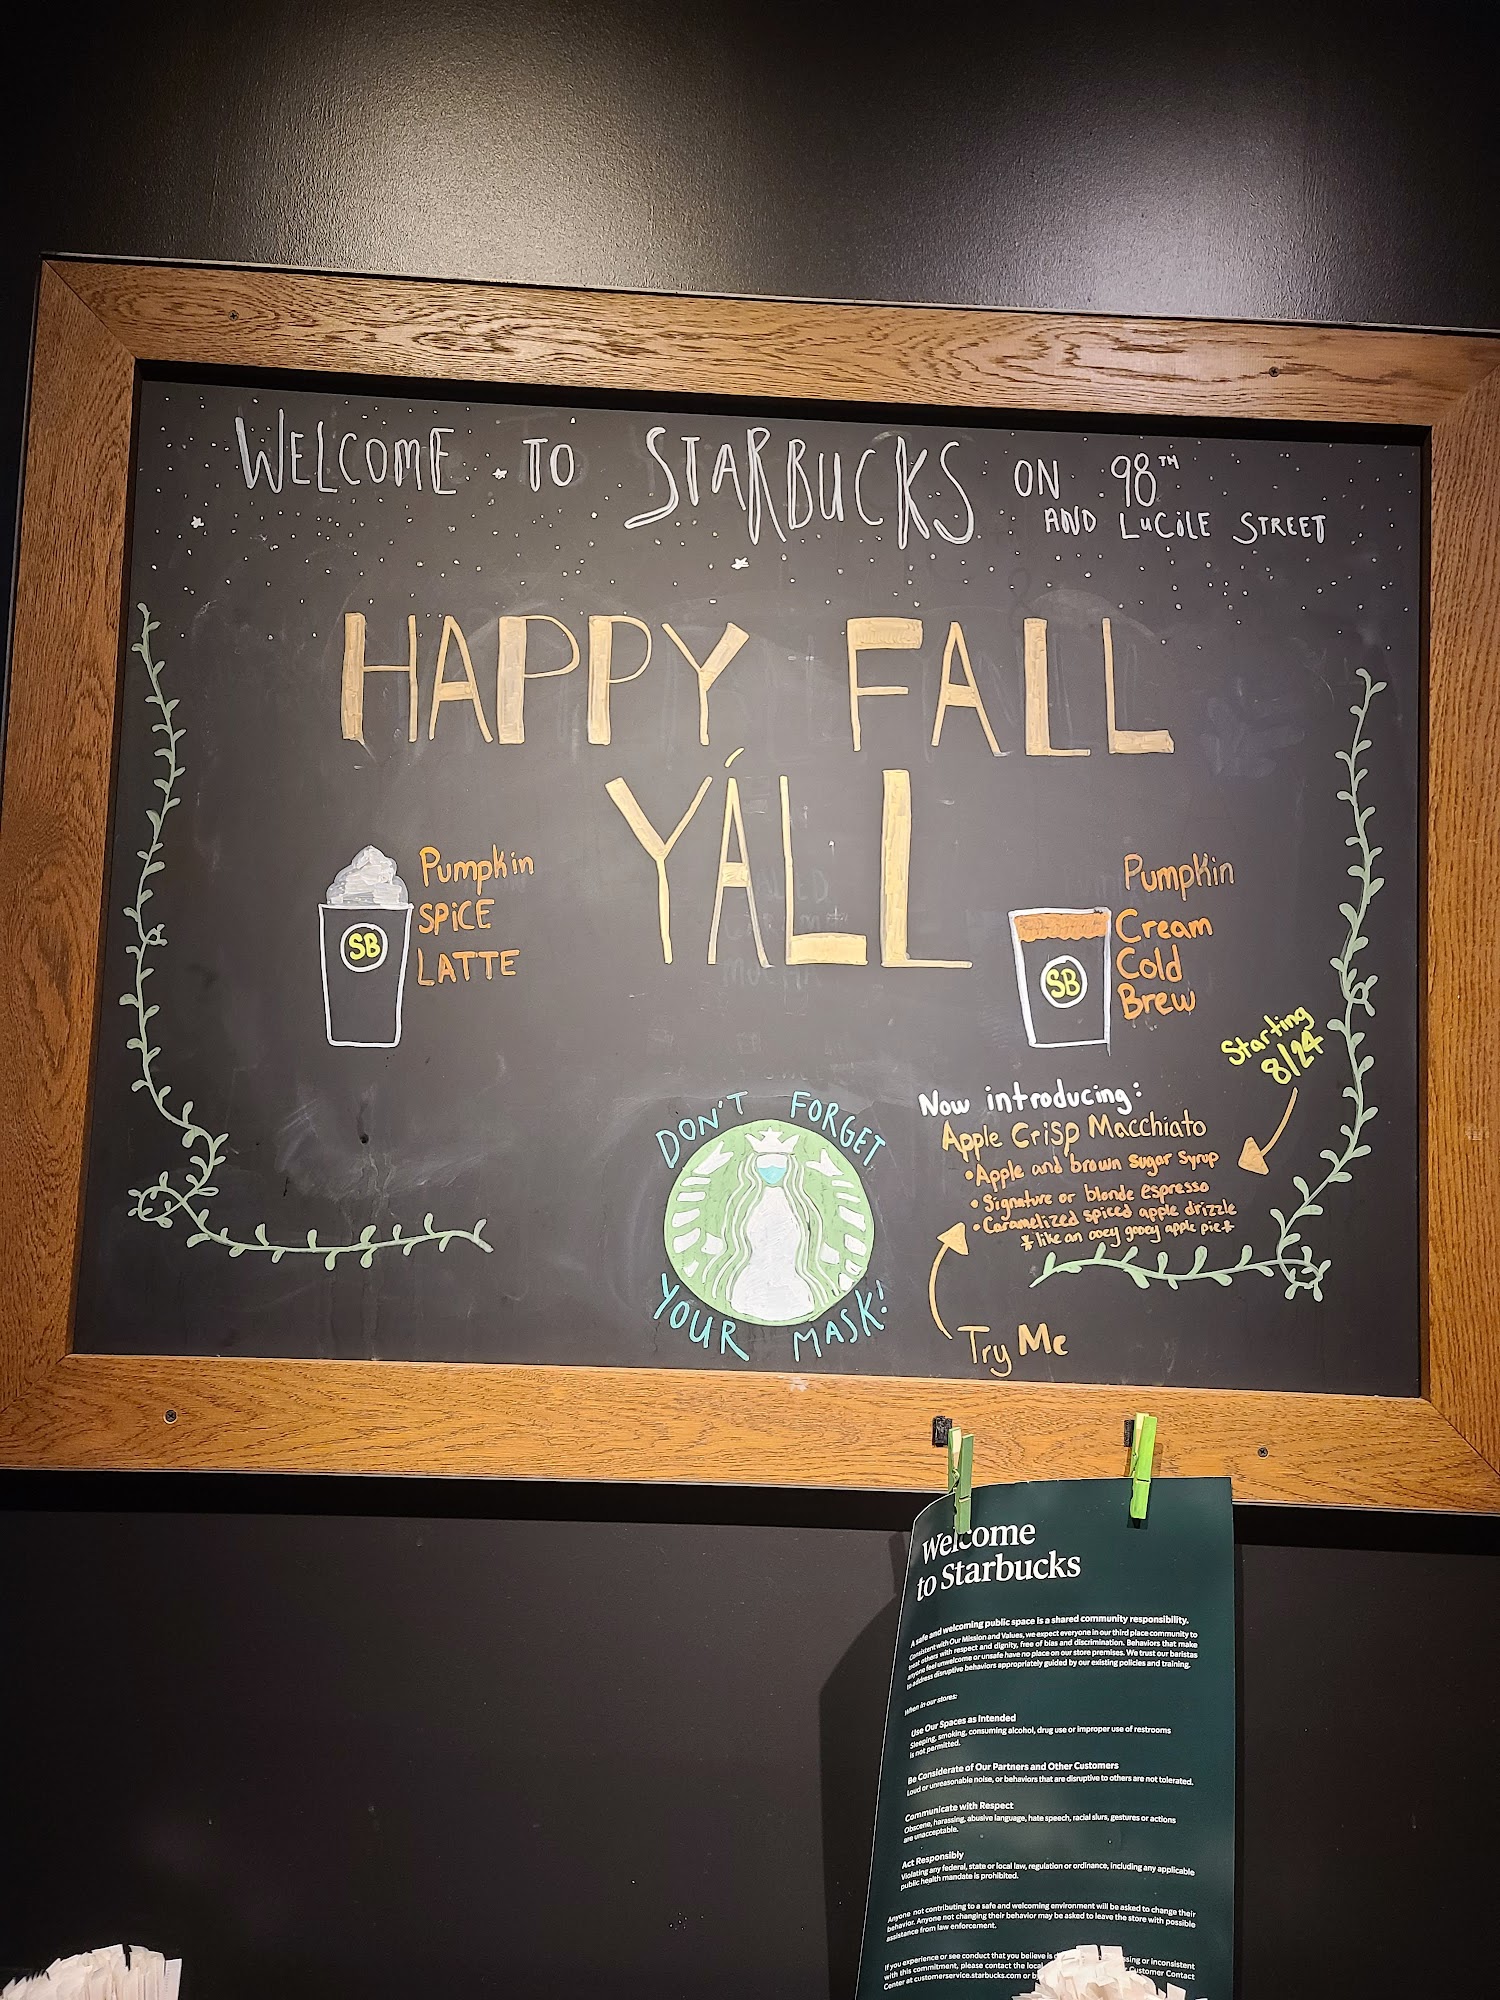 WELCOME TO STARBUCKS ON 98TH
AND LUCILE STREET
HAPPY FALL
Y'ALL
Pumpkin
SPICE
LATTE
SB
Pumpkin
Cream
Cold
Brew
SB
Starting
8/24
Now introducing:
Apple Crisp Macchiato
• Apple and brown sugar syrup
• Signature or blonde espresso
• Caramelized spiced apple drizzle
* like an ooey gooey apple pie *
Try Me
DON'T FORGET
YOUR MASK!
Welcome
to Starbucks
A safe and welcoming public space is a shared community responsibility.
Consistent with Our Mission and Values, we expect everyone in our third place community to
treat others with respect and dignity, free of bias and discrimination. Behaviors that make
anyone feel unwelcome or unsafe have no place on our store premises. We trust our baristas
to address disruptive behaviors appropriately guided by our existing policies and training.
When in our stores:
Use Our Spaces as Intended
Sleeping, smoking, consuming alcohol, drug use or improper use of restrooms
is not permitted.
Be Considerate of Our Partners and Other Customers
Loud or unreasonable noise, or behaviors that are disruptive to others are not tolerated.
Communicate with Respect
Obscene, harassing, abusive language, hate speech, racial slurs, gestures or actions
are unacceptable.
Act Responsibly
Violating any federal, state or local law, regulation or ordinance, including any applicable
public health mandate is prohibited.
Anyone not contributing to a safe and welcoming environment will be asked to change their
behavior. Anyone not changing their behavior may be asked to leave the store with possible
assistance from law enforcement.
If you experience or see conduct that you believe is or inconsistent
with this commitment, please contact the local Customer Contact
Center at customerservice.starbucks.com or